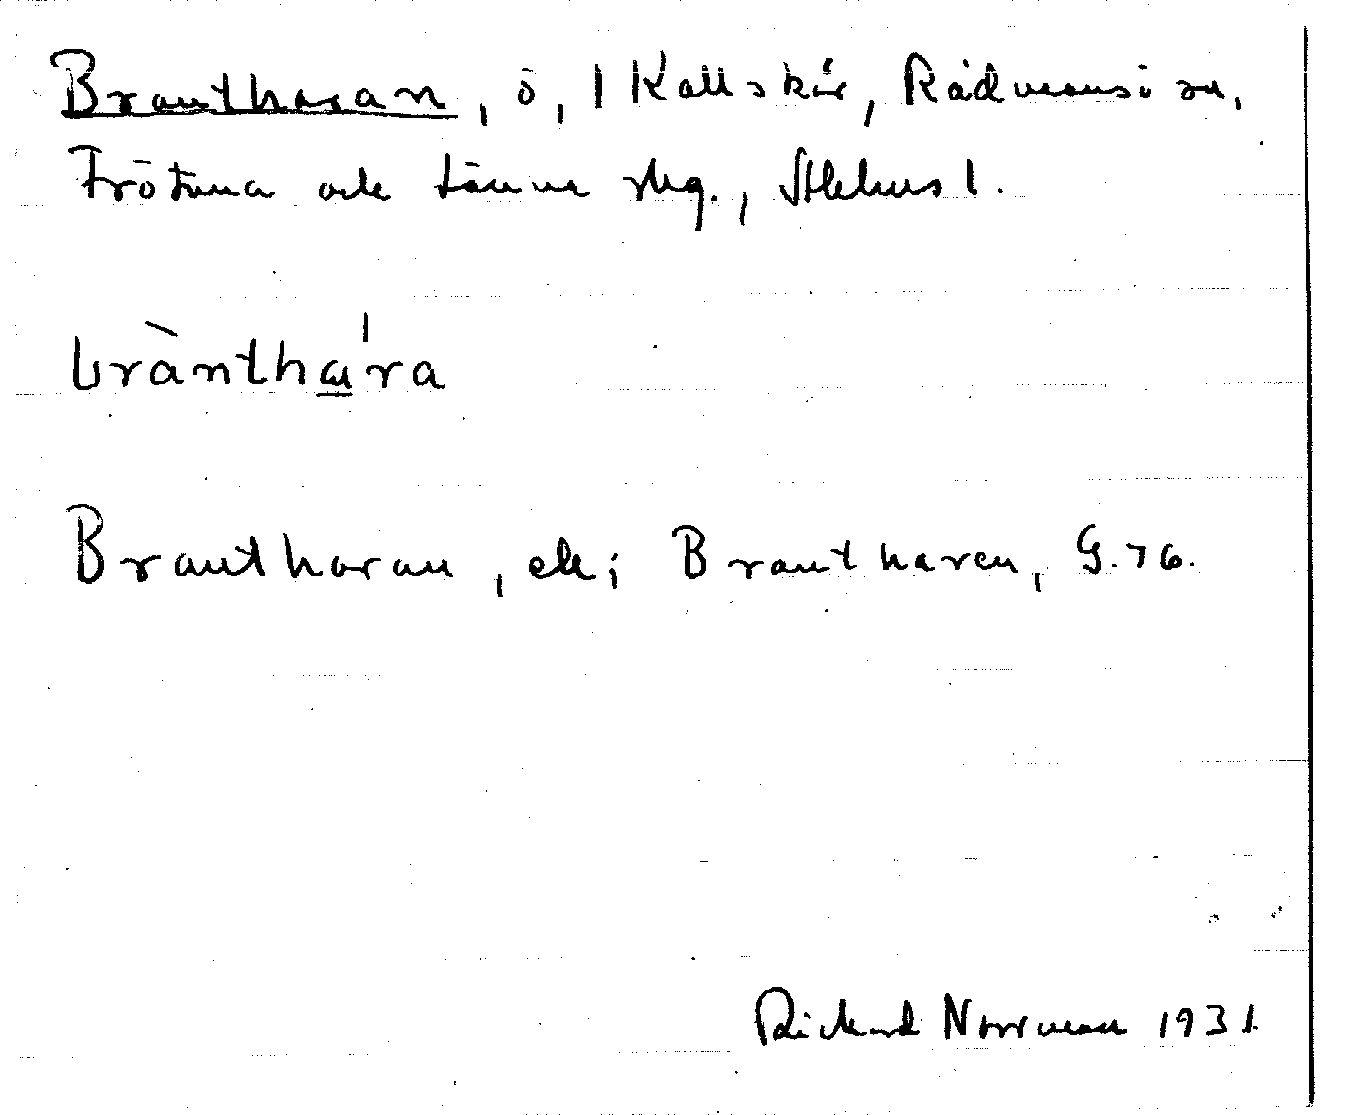 Brantharan, ö, 1 Kallskär, Rådmansö sn,
Frötuna och Länna skg., Sthlms l.
bràntha̲'ra
Brantharan, ek; Brantharen, G.76.
Rickard Norrman 1931